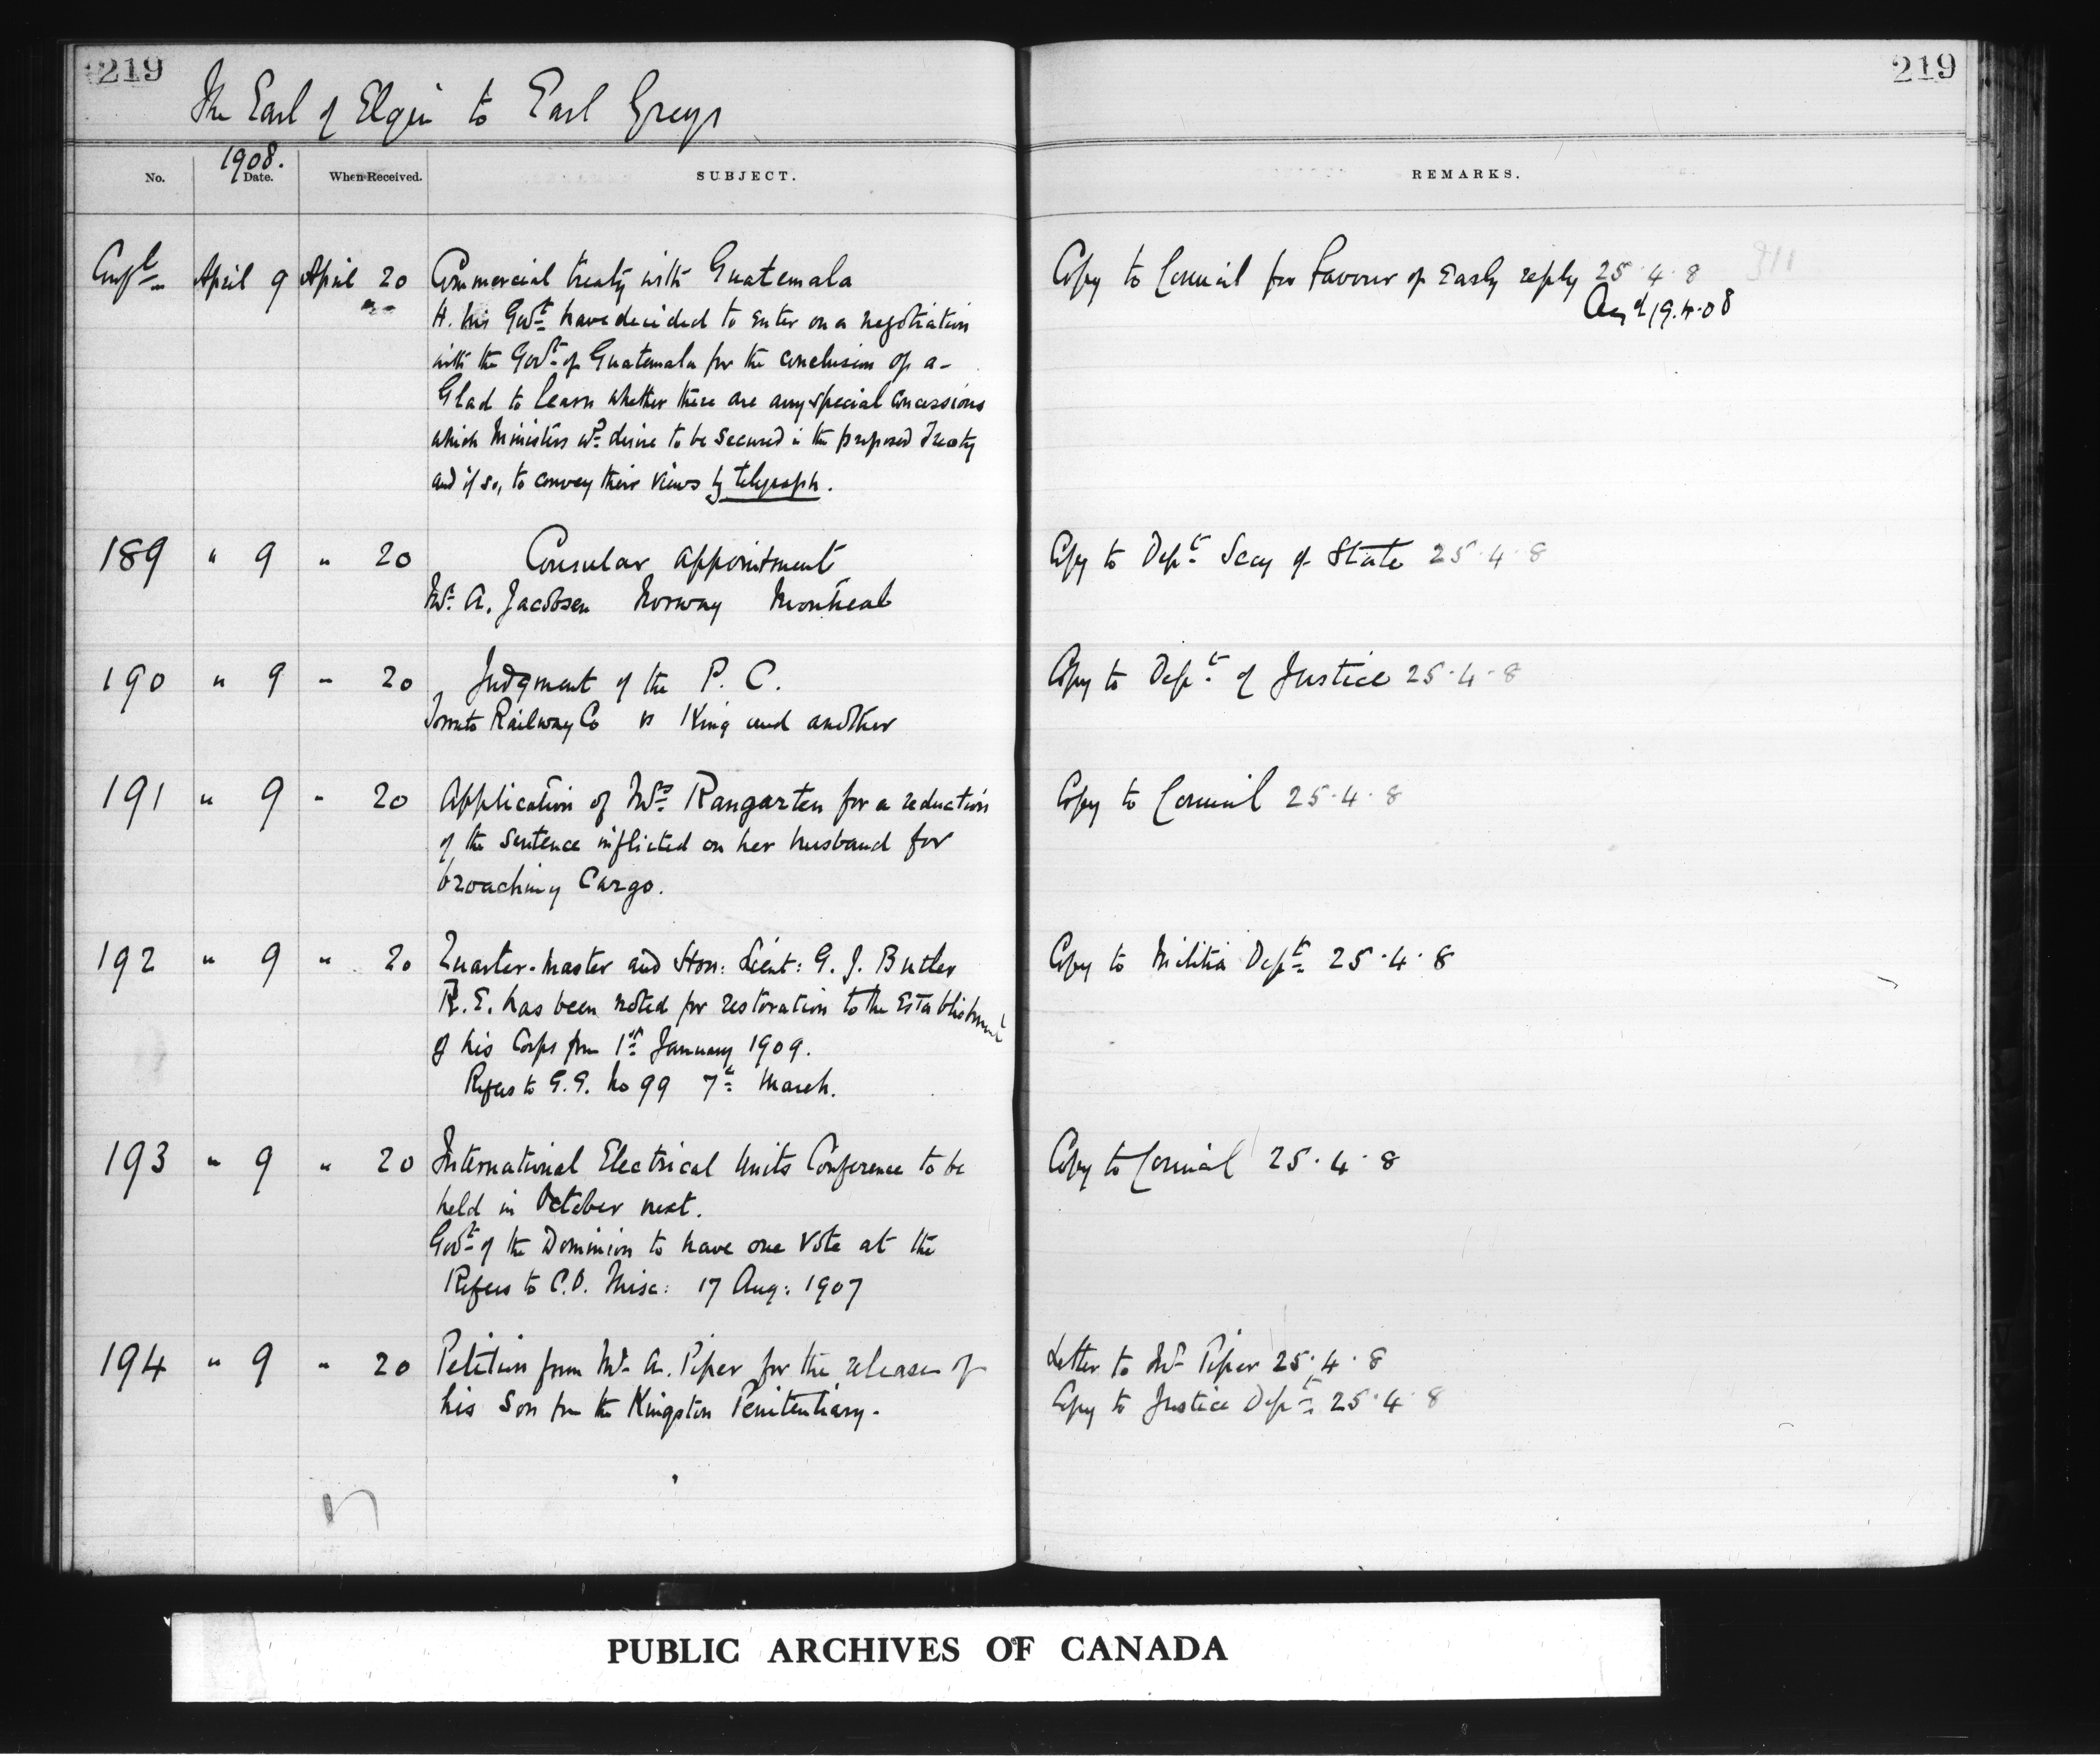 219
219
The Earl of Elgin to Earl Grey
1908.
No. Date. When Received. SUBJECT. REMARKS.
April 9 April 20 Commercial treaty with Guatemala Copy to Council for favour of Early reply 25.4.8
H. M's Govt have decided to enter on a negotiation 19.4.08
with the Govt of Guatemala for the conclusion of a-
Glad to learn whether there are any special concessions
which Ministers wd desire to be secured in the proposed Treaty
and if so, to convey their views by telegraph.
189 " 9 " 20 Consular appointment Copy to Dept Secy of State 25.4.8
Mr. A. Jacobsen Norway Montreal
190 " 9 " 20 Judgment of the P. C. Copy to Dept of Justice 25.4.8
Toronto Railway Co vs King and another
191 " 9 " 20 Application of Mrs Rangarten for a reduction Copy to Council 25.4.8
of the sentence inflicted on her husband for
broaching Cargo.
192 " 9 " 20 Quarter-master and Hon: Lieut: G. J. Butler Copy to Militia Dept 25.4.8
R. E. has been noted for restoration to the Establishment
of his Corps from 1st January 1909.
Refers to G.G. No 99 7th March.
193 " 9 " 20 International Electrical Units Conference to be Copy to Council 25.4.8
held in October next.
Govt of the Dominion to have one vote at the
Refers to C.O. Misc: 17 Aug: 1907
194 " 9 " 20 Petition from Mr A. Piper for the release of Letter to Mr Piper 25.4.8
his son from the Kingston Penitentiary. Copy to Justice Dept 25.4.8
PUBLIC ARCHIVES OF CANADA